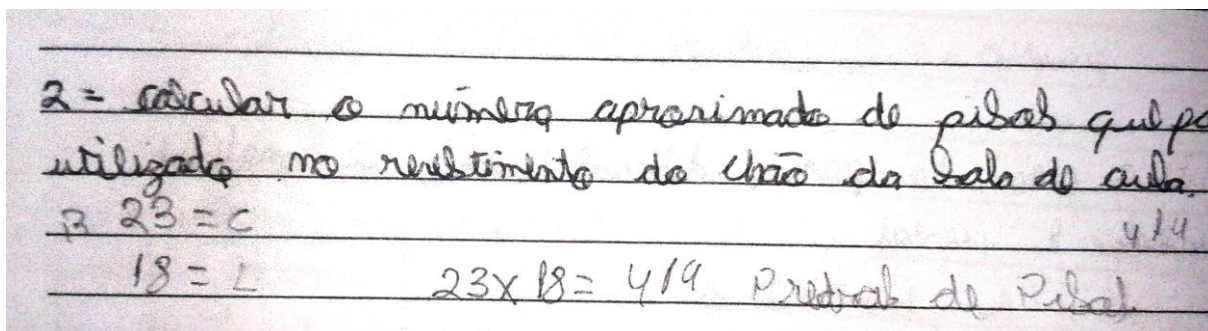 2 = calcular o número aproximado de pisos que
utilizado no revestimento do chão da sala de aula.
R 23 = C 414
18 = L 23 x 18 = 414 Pedras de Pisos